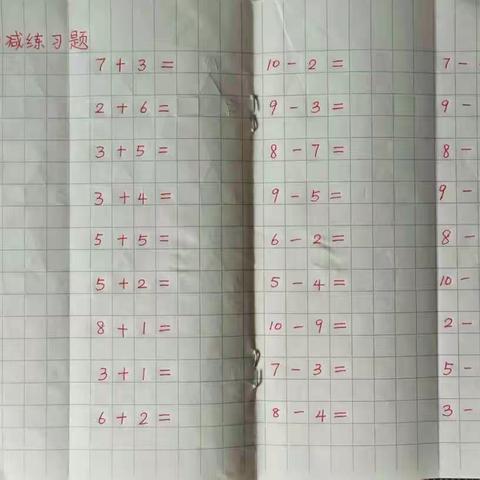 减练习题
7 + 3 = 10 - 2 = 7 -
2 + 6 = 9 - 3 = 9 -
3 + 5 = 8 - 7 = 8 -
3 + 4 = 9 - 5 = 9 -
5 + 5 = 6 - 2 = 8 -
5 + 2 = 5 - 4 = 10 -
8 + 1 = 10 - 9 = 2 -
3 + 1 = 7 - 3 = 5 -
6 + 2 = 8 - 4 = 3 -